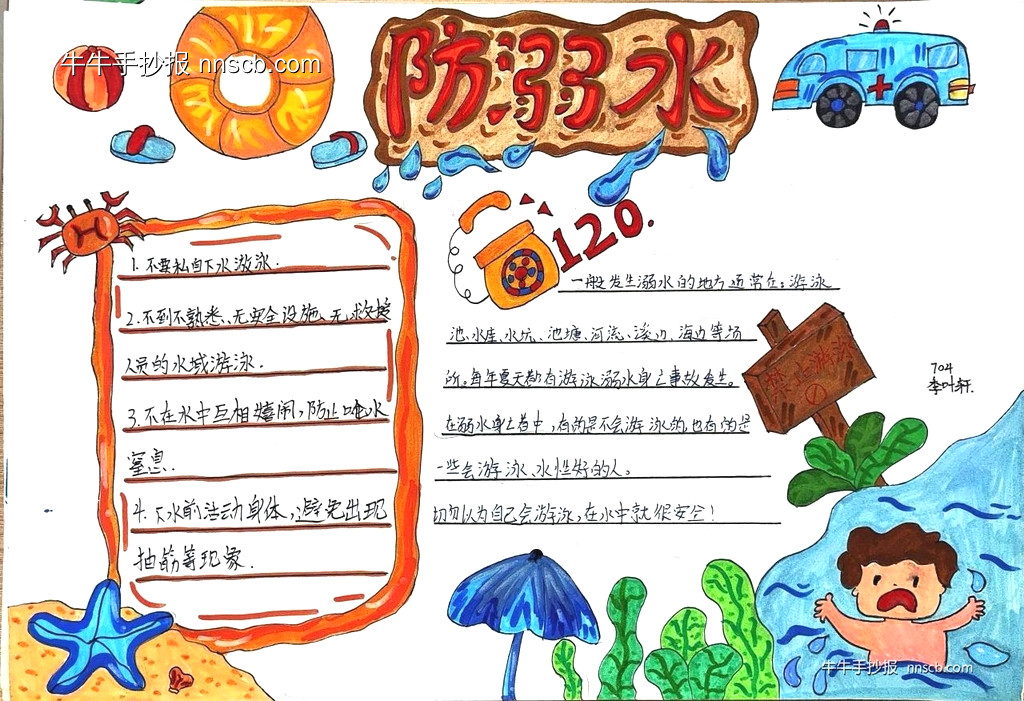 牛牛手抄报 nnscb.com
防溺水
120.
1.不要私自下水游泳.
2.不到不熟悉、无安全设施、无救援
人员的水域游泳.
3.不在水中互相嬉闹,防止呛水
窒息.
4.下水前活动身体,避免出现
抽筋等现象.
一般发生溺水的地方通常在:游泳
池、水库、水坑、池塘、河流、溪边、海边等场
所。每年夏天都有游泳溺水身亡事故发生。
在溺水身亡者中,有的是不会游泳的,也有的是
一些会游泳、水性好的人。
切勿以为自己会游泳,在水中就很安全!
禁止游泳
704
李叶轩.
牛牛手抄报 nnscb.com